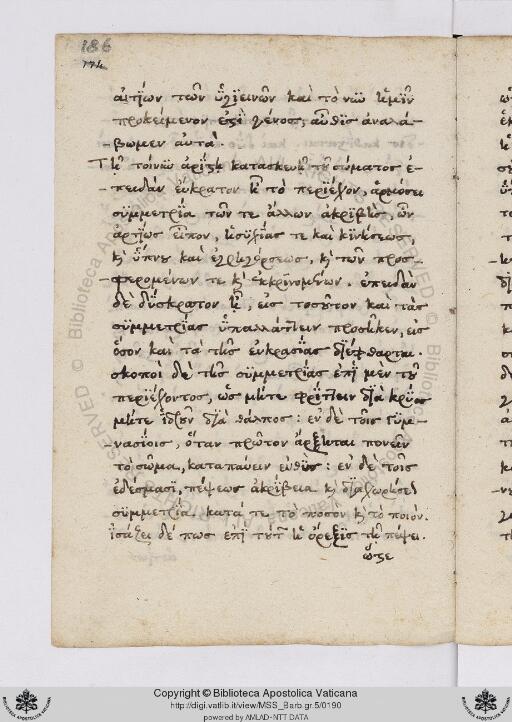 186
174
αἰτίων τῶν ὑγιεινῶν καὶ τὸ νῦν ἡμῖν
προκείμενον ἐστὶ γένος, αὖθις ἀναλά-
-βωμεν αὐτά.
Τῇ τοίνυν ἀρίστῃ κατασκευῇ τοῦ σώματος ἐ-
πειδὰν εὔκρατον ᾖ τὸ περιέχον, ἁρμόσει
συμμετρία τῶν τε ἄλλων ἀκριβὴς, ὧν
ἀρτίως εἶπον, ἡσυχίας τε καὶ κινήσεως,
κὶ ὕπνου καὶ ἐγρηγόρσεως, κὶ τῶν προσ-
-φερομένων τε κὶ ἐκκρινομένων. ἐπειδὰν
δὲ δύσκρατον ᾖ, εἰς τοσοῦτον καὶ τὰς
συμμετρίας ὑπαλλάττειν προσῆκεν, εἰς
ὅσον καὶ τὰ τῆς εὐκρασίας διέφθαρται.
σκοποὶ δὲ τῆς συμμετρίας ἐπὶ μὲν τοῦ
περιέχοντος, ὡς μήτε φρίττειν διὰ κρύος
μήτε ἱδροῦν διὰ θάλπος: ἐν δὲ τοῖς γυμ-
νασίοις, ὅταν πρῶτον ἄρξηται πονεῖν
τὸ σῶμα, καταπαύειν εὐθύς: ἐν δὲ τοῖς
ἐδέσμασι, πέψεως ἀκρίβεια κὶ διαχωρήσεως
συμμετρία κατά τε τὸ ποσὸν κὶ τὸ ποιόν.
ἰσάζει δέ πως ἐπὶ τούτῳ ἡ ὄρεξις τῇ πέψει.
ὥστε
Copyright © Biblioteca Apostolica Vaticana
http://digi.vatlib.it/view/MSS_Barb.gr.5/0190
powered by AMLAD-NTT DATA